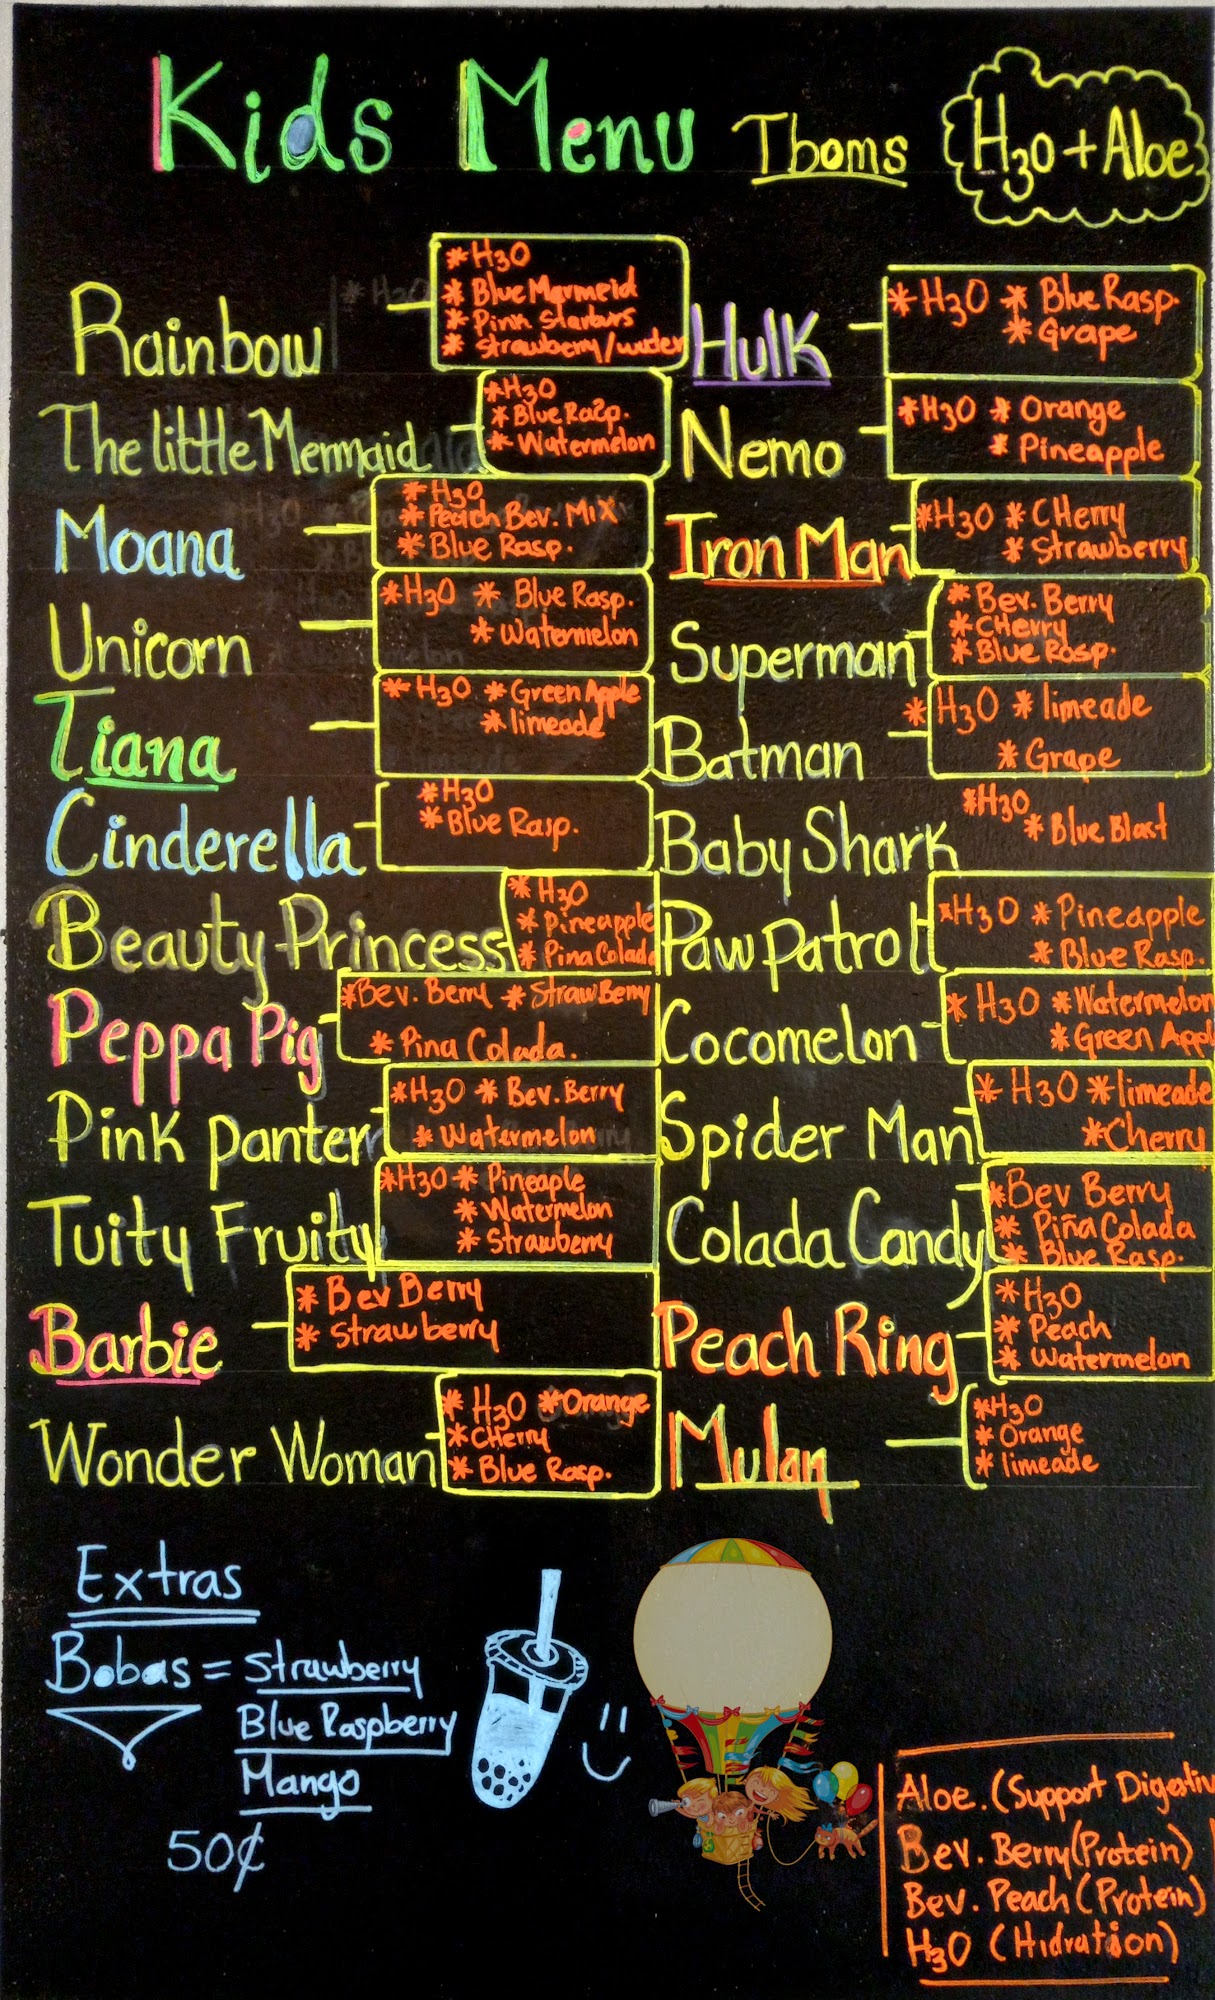 Kids Menu Tboms H30 + Aloe
Rainbow
* H30
* Blue Mermeid
* Pinn Starburs
* Strawberry/water
The little Mermaid
* H30
* Blue Rasp.
* Watermelon
Moana
* H30
* Peach Bev. Mix
* Blue Rasp.
Unicorn
* H30 * Blue Rasp.
* Watermelon
Tiana
* H30 * Green Apple
* limeade
Cinderella
* H30
* Blue Rasp.
Beauty Princess
* H30
* Pineapple
* Pina Colada
Peppa Pig
* Bev. Berry * StrawBerry
* Pina Colada.
Pink panter
* H30 * Bev. Berry
* Watermelon
Tuity Fruity
* H30 * Pineaple
* Watermelon
* Strawberry
Barbie
* Bev Berry
* Strawberry
Wonder Woman
* H30 * Orange
* CHerry
* Blue Rasp.
Hulk
* H30 * Blue Rasp.
* Grape
Nemo
* H30 * Orange
* Pineapple
Iron Man
* H30 * CHerry
* Strawberry
Superman
* Bev. Berry
* CHerry
* Blue Rasp.
Batman
* H30 * limeade
* Grape
Baby Shark
* H30
* Blue Blast
Paw Patroll
* H30 * Pineapple
* Blue Rasp.
Cocomelon
* H30 * Watermelon
* Green Appl
Spider Man
* H30 * limeade
* Cherry
Colada Candy
* Bev Berry
* Piña Colada
* Blue Rasp.
Peach Ring
* H30
* Peach
* Watermelon
Mulan
* H30
* Orange
* limeade
Extras
Bobas = Strawberry
Blue Raspberry
Mango
50¢
Aloe. (Support Digestiv
Bev. Berry (Protein)
Bev. Peach (Protein)
H30 (Hidration)